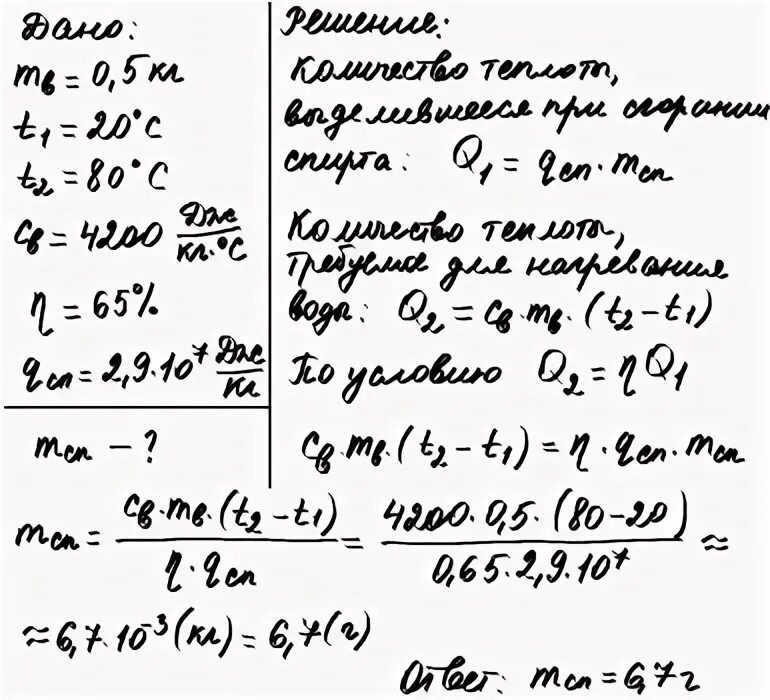 Дано:
mв = 0,5 кг
t1 = 20°C
t2 = 80°C
cв = 4200 Дж/кг·°C
η = 65%
qсп = 2,9·10⁷ Дж/кг
mсп – ?
Решение:
Количество теплоты,
выделившееся при сгорании
спирта: Q1 = qсп·mсп
Количество теплоты,
требуемое для нагревания
воды: Q2 = cв·mв·(t2–t1)
По условию Q2 = ηQ1
cв·mв·(t2–t1) = η·qсп·mсп
mсп = cв·mв·(t2–t1)/η·qсп = 4200·0,5·(80–20)/0,65·2,9·10⁷ ≈
≈ 6,7·10⁻³(кг) = 6,7(г)
Ответ: mсп = 6,7г